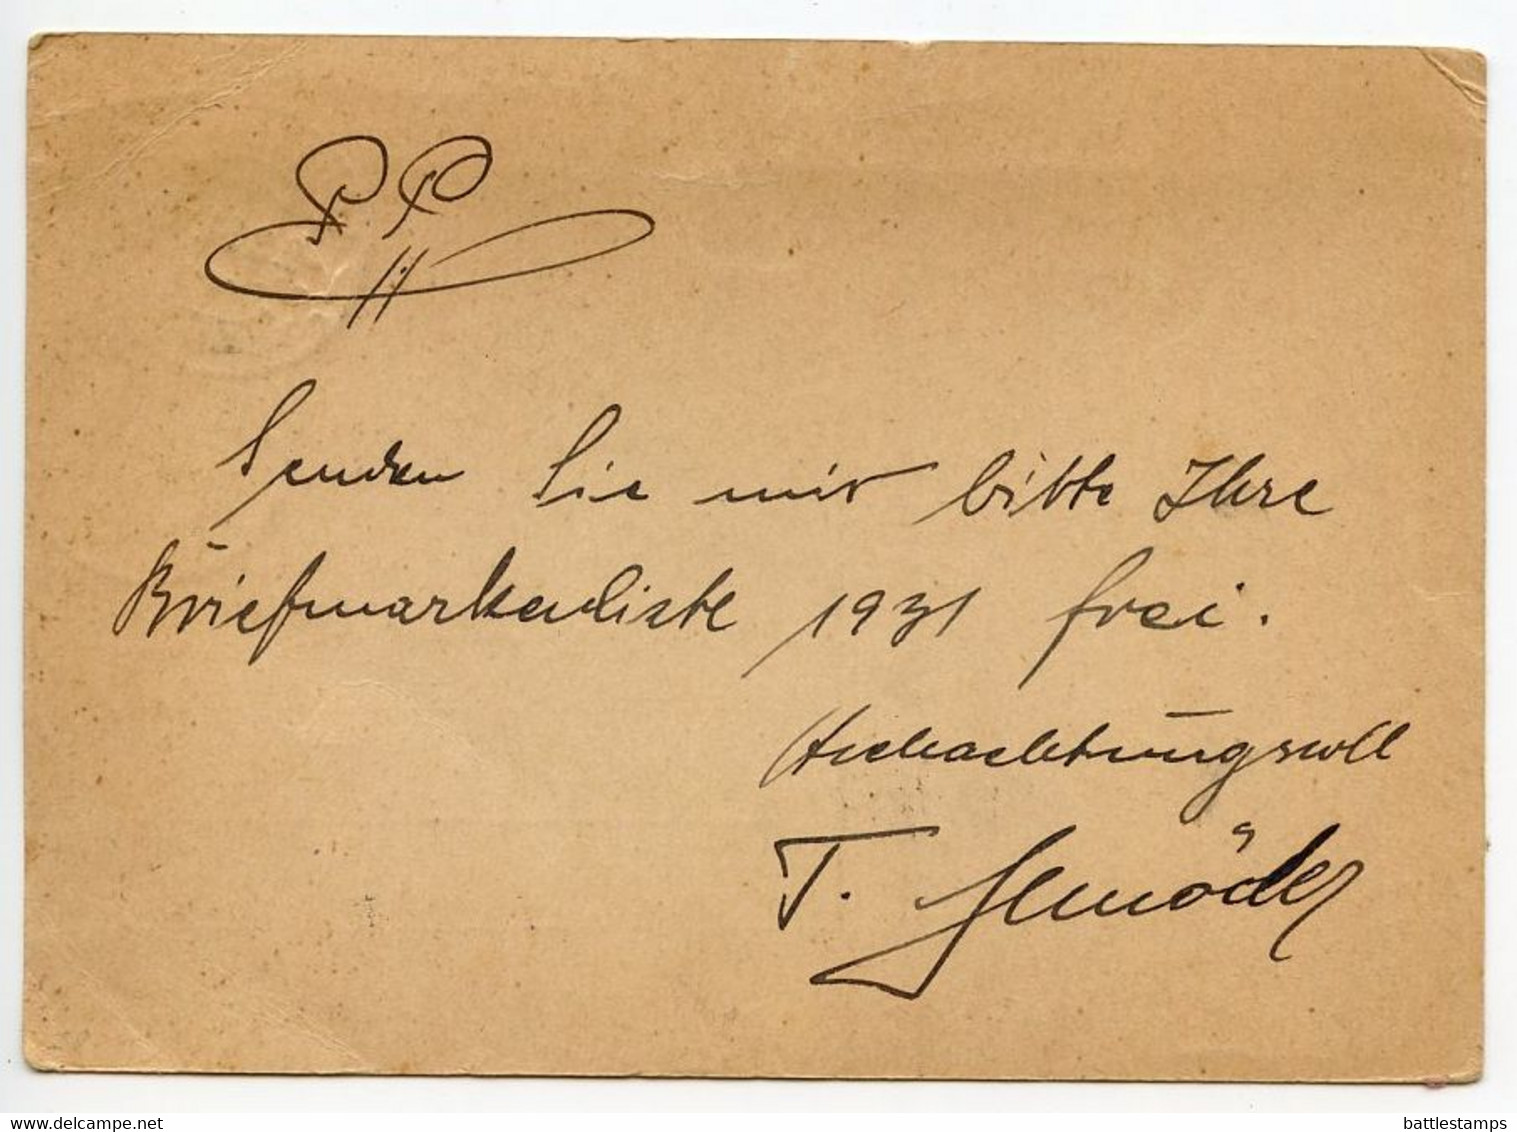 P. P.
Senden Sie mir bitte Ihre
Briefmarkenliste 1931 frei.
Hochachtungsvoll
T.
delcampe.net
battlestamps